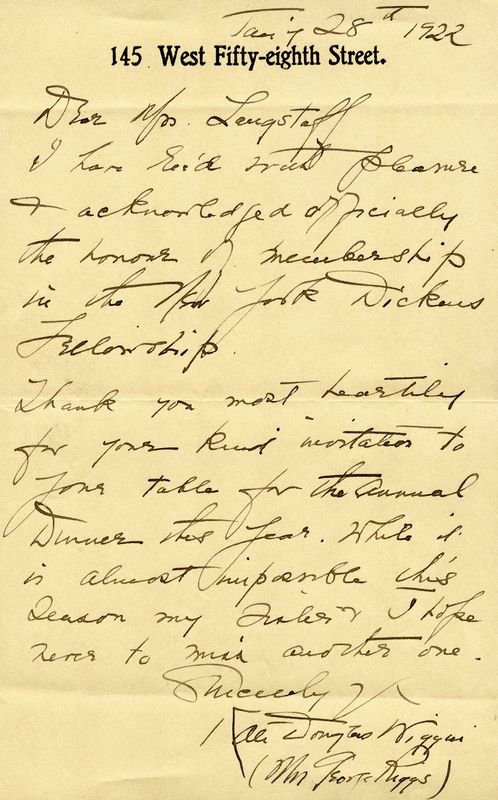 Jan'y 28th 1922
145 West Fifty-eighth Street.
Dear Mrs. Langstaff
I have rec'd with pleasure
& acknowledged officially
the honour of membership
in the New York Dickens
Fellowship.
Thank you most heartily
for your kind invitation to
your table for the Annual
Dinner this year. While it
is almost impossible this
season my sister & I hope
never to miss another one.
Sincerely Y
Kate Douglas Wiggin
(Mrs George Riggs)